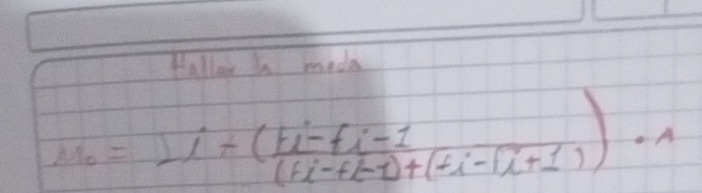 Hallar la moda
Mo = Li + (fi-fi-1
(fi-fi-1)+(fi-fi+1)) . A